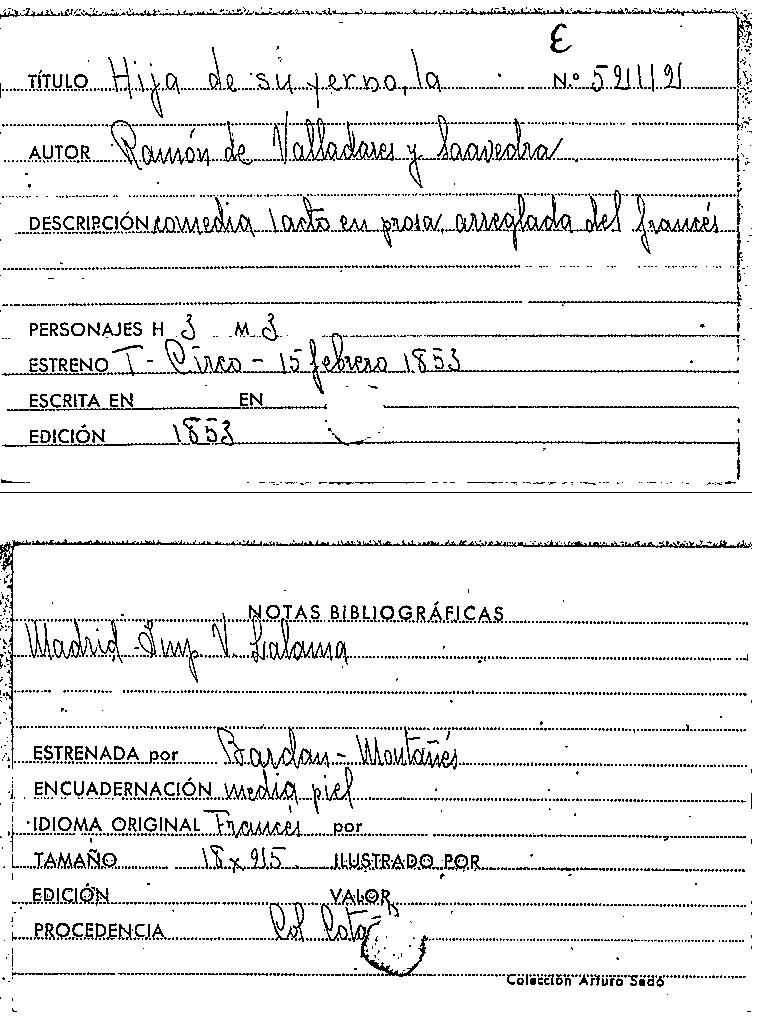 E
TÍTULO Hija de su yerno, la N.º
AUTOR Ramón de Valladares y Saavedra
DESCRIPCIÓN comedia 1 acto en prosa, arreglada del francés
PERSONAJES H 3 M 3
ESTRENO T - Circo - 15 febrero 1853
ESCRITA EN EN
EDICIÓN 1853
NOTAS BIBLIOGRÁFICAS
Madrid - Imp. V. Lalama
ESTRENADA por Bardan - Montañés
ENCUADERNACIÓN media piel
IDIOMA ORIGINAL Francés por
TAMAÑO ILUSTRADO POR
EDICIÓN VALOR
PROCEDENCIA Col
Colección Arturo Sedó